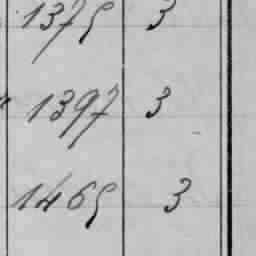 1375 3
" 1397 3
1465 3